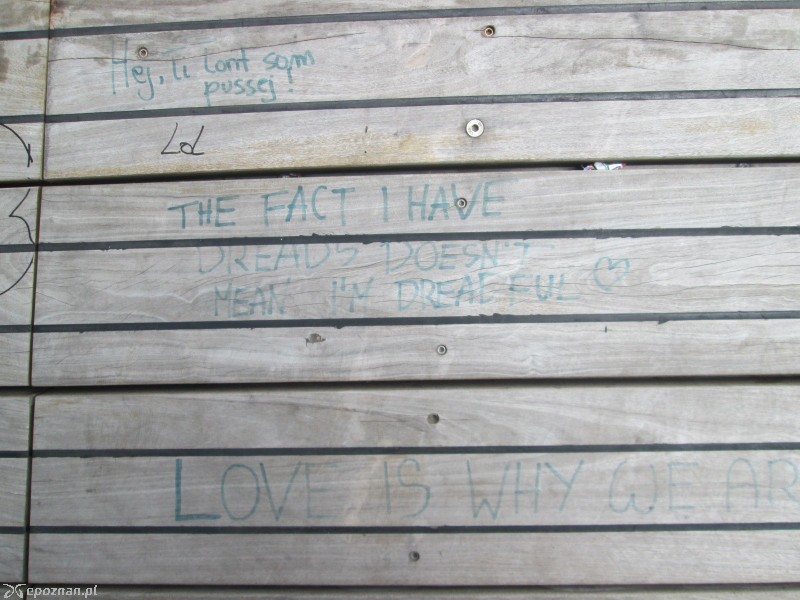 Hej, u lont som
pussej!
Lol
THE FACT I HAVE
DREADS DOESN'T
MEAN I'M DREADFUL
LOVE IS WHY WE AR
epoznan.pl